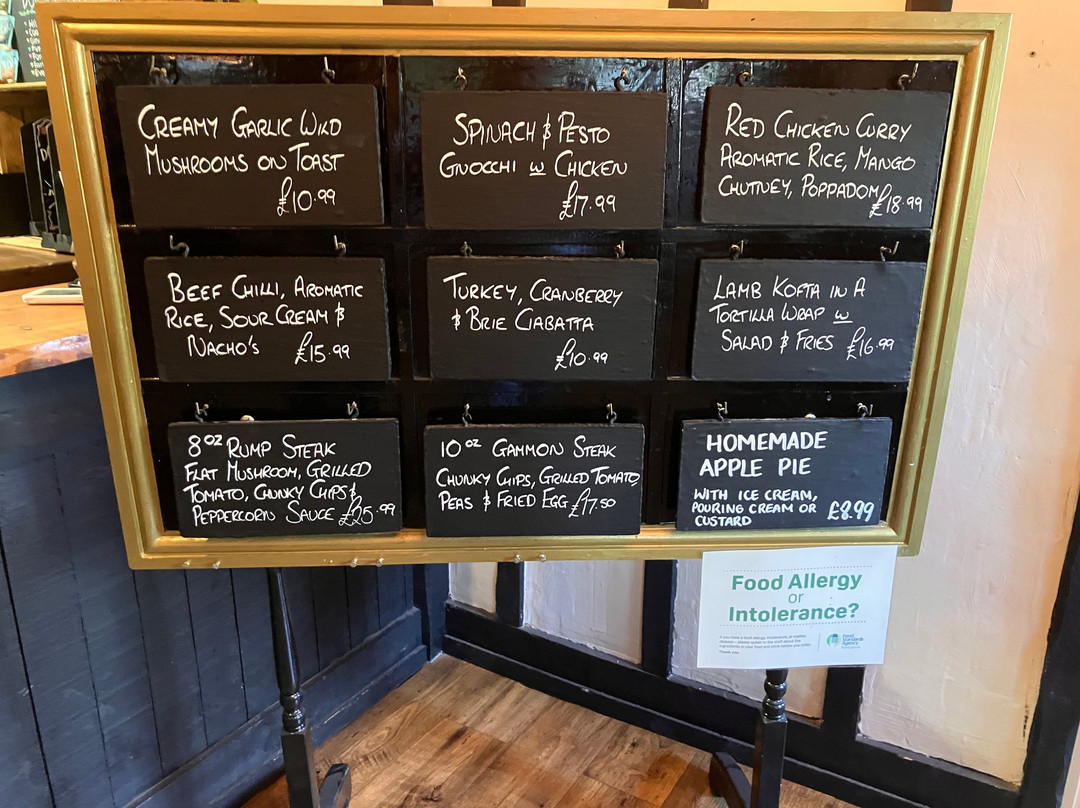 CREAMY GARLIC WILD
MUSHROOMS ON TOAST
£10.99
SPINACH & PESTO
GNOCCHI w CHICKEN
£17.99
RED CHICKEN CURRY
AROMATIC RICE, MANGO
CHUTNEY, POPPADOM £18.99
BEEF CHILLI, AROMATIC
RICE, SOUR CREAM &
NACHO'S £15.99
TURKEY, CRANBERRY
& BRIE CIABATTA
£10.99
LAMB KOFTA IN A
TORTILLA WRAP w
SALAD & FRIES £16.99
8oz RUMP STEAK
FLAT MUSHROOM, GRILLED
TOMATO, CHUNKY CHIPS &
PEPPERCORN SAUCE £25.99
10oz GAMMON STEAK
CHUNKY CHIPS, GRILLED TOMATO
PEAS & FRIED EGG £17.50
HOMEMADE
APPLE PIE
WITH ICE CREAM,
POURING CREAM OR
CUSTARD £8.99
Food Allergy
or
Intolerance?
Food
Standards
Agency
Thank you